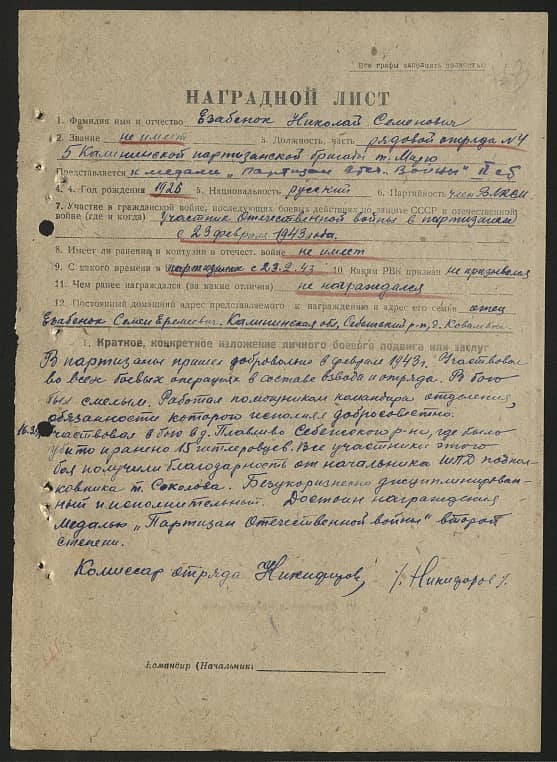 Все графы заполнять полностью
НАГРАДНОЙ ЛИСТ
1. Фамилия имя и отчество Езабенок Николай Семенович
2. Звание не имеет 3. Должность, часть рядовой отряда №4
5 Калининской партизанской бригады т. Марго
Представляется к медали „Партизан Отеч. Войны" II ст
4. 4. Год рождения 1926 5. Национальность русский 6. Партийность член ВЛКСМ
7. Участие в гражданской войне, последующих боевых действиях по защите СССР и отечественной
войне (где и когда) Участник Отечественной войны в партизанах
с 23 февраля 1943 года.
8. Имеет ли ранения и контузии в отечест. войне не имеет
9. С какого времени в партизанах с 23.2.43 10 Каким РВК призван не призывался
11. Чем ранее награждался (за какие отличия) не награждался
12. Постоянный домашний адрес представляемого к награждению и адрес его семьи отец
Езабенок Семен Еремеевич. Калининская обл, Себежский р-н, д.
1. Краткое, конкретное изложение личного боевого подвига или заслуг
В партизаны пришел добровольно в феврале 1943 г. Участвовал
во всех боевых операциях в составе взвода и отряда. В бою
был смелым. Работал помощником командира отделения,
обязанности которого исполнял добросовестно.
Участвовал в бою в д. Себежского р-на, где было
убито и ранено 15 гитлеровцев. Все участники этого
боя получили благодарность от начальника ШПД полко
ковника т. Соколова. Безукоризненно дисциплинирован-
ный и исполнительный. Достоин награждения
медалью „Партизан Отечественной войны" второй
степени.
Комиссар отряда Никифоров /Никифоров/.
Командир (Начальник)